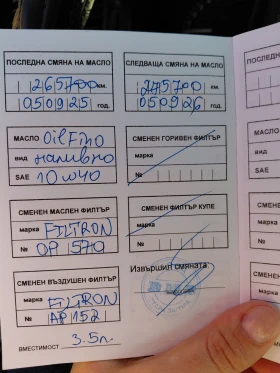 ПОСЛЕДНА СМЯНА НА МАСЛО
265700 км.
050925 год.
СЛЕДВАЩА СМЯНА НА МАСЛО
275700 км.
050926 год.
МАСЛО Oil Fino
вид наливно
SAE 10W40
СМЕНЕН ГОРИВЕН ФИЛТЪР
марка
№
СМЕНЕН МАСЛЕН ФИЛТЪР
марка FILTRON
№ OP 570
СМЕНЕН ФИЛТЪР КУПЕ
марка
№
СМЕНЕН ВЪЗДУШЕН ФИЛТЪР
марка FILTRON
№ AP 152
Извършил смяната:
ВМЕСТИМОСТ 3.5л.